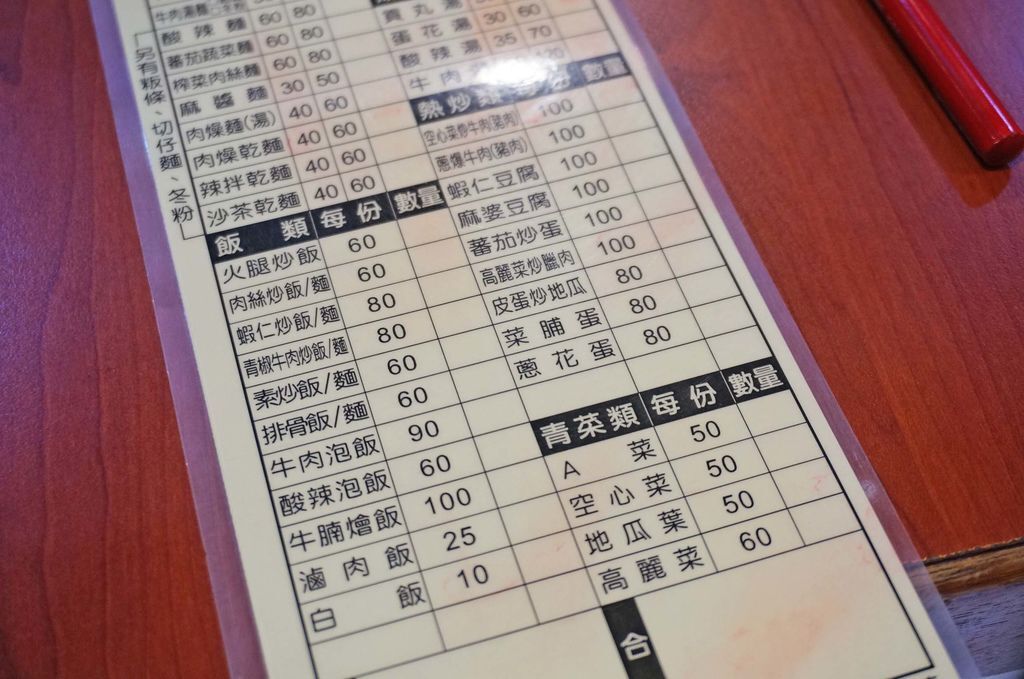 另有粄條、切仔麵、冬粉
酸辣麵 60 80
蕃茄蔬菜麵 60 80
榨菜肉絲麵 60 80
麻醬麵 30 50
肉燥麵(湯) 40 60
肉燥乾麵 40 60
辣拌乾麵 40 60
沙茶乾麵 40 60
飯類 每份 數量
火腿炒飯 60
肉絲炒飯/麵 60
蝦仁炒飯/麵 80
青椒牛肉炒飯/麵 80
素炒飯/麵 60
排骨飯/麵 60
牛肉泡飯 90
酸辣泡飯 60
牛腩燴飯 100
滷肉飯 25
白飯 10
貢丸湯
蛋花湯 30 60
酸辣湯 35 70
牛肉
熱炒類 每份 數量
空心菜炒牛肉(豬肉) 100
蔥爆牛肉(豬肉) 100
蝦仁豆腐 100
麻婆豆腐 100
蕃茄炒蛋 100
高麗菜炒臘肉 100
皮蛋炒地瓜 80
菜脯蛋 80
蔥花蛋 80
青菜類 每份 數量
A菜 50
空心菜 50
地瓜葉 50
高麗菜 60
合